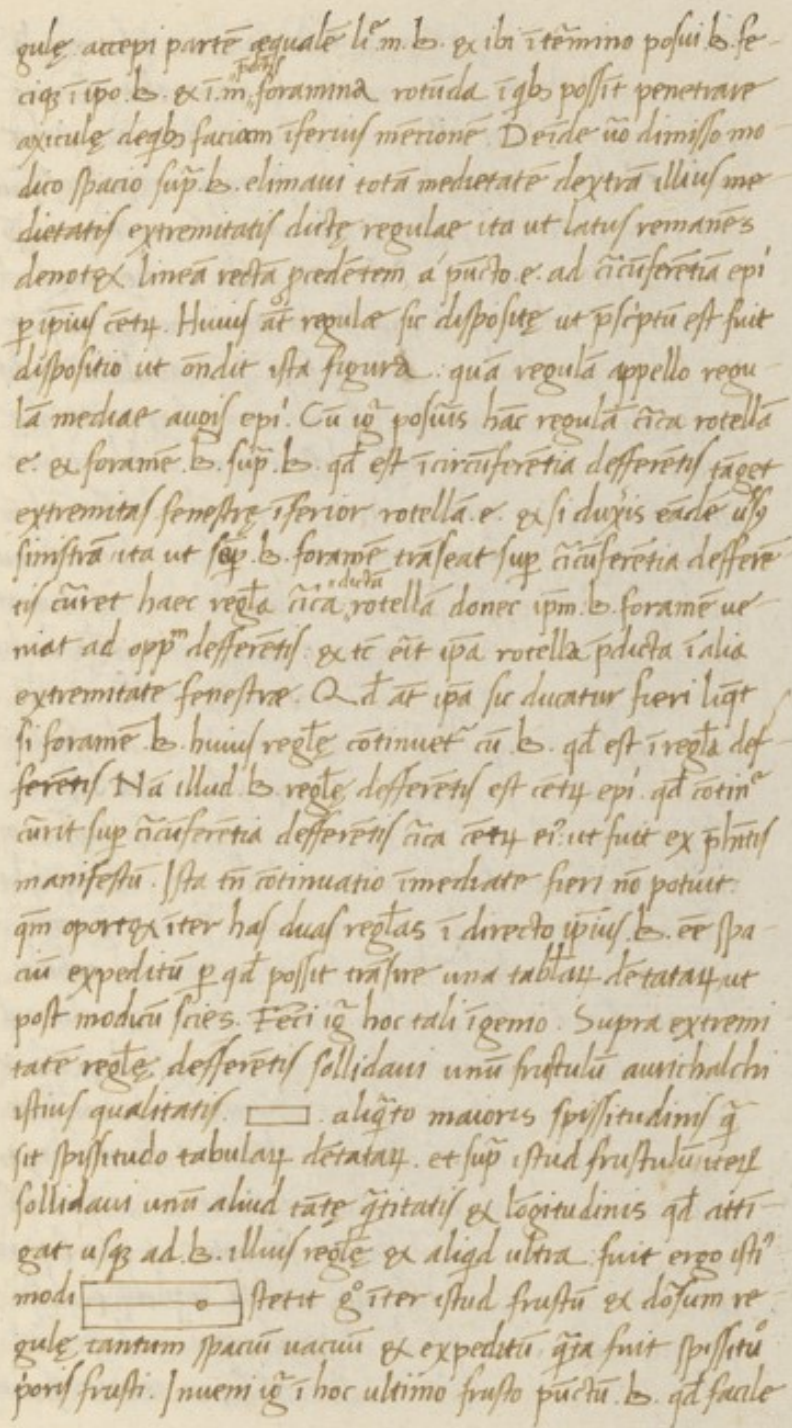 gulę accepi partē æqualē li᷒ m. b. & ibi ī tēmino posui .b. fe-
ciqꝫ ī ipo .b. & ī .m. foramina rotūda ī qb possit penetrare
axiculę de qb faciam īferius mētionē. Deīde ūo dimisso mo-
dico spacio sup̄ .b. elimaui totā medietatē dextrā illius me-
dietatis extremitatis dictę regulae ita ut latus remanēs
denotet lineā rectā pcedētem a pūcto .e. ad ciīcūferētiā epi
ꝑ ipīus cētꝝ. Huius āt regulæ sic dispositę ut p̄scptū est fuit
dispositio ut ōndit ista figura : quā regulā appello regu-
lā mediae augis epi. Cū ig posūīs hāc regulā cīca rotellā
e. & foramē .b. sup̄ .b. qd̄ est ī circūferētia defferētis tāget
extremitas fenestrę īferior rotellā .e. & si duxis eādē usꝫ
sinistrā ita ut sup̄ .b. foramē trāseat sup̄ cīcūferētia defferē-
tis cūret haec regła cīca dictā rotellā donec ipm̄ .b. foramē ue-
niat ad opp^m defferētis & tc̄ eīt ipā rotella p̄dicta ī alia
extremitate fenestræ. Qd̄ āt ipā sic ducatur fieri liqt
si foramē .b. huius regłę cōtinuet cū .b. qd̄ est ī regła def-
ferētis Nā illud .b. regłę defferētis est cētꝝ epi qd̄ cōtin^e
cūrit sup cīcūferētia defferētis cīca cētꝝ ei᷒ ut fuit ex p̄hn̄tis
manifestū. Ista tn̄ cōtinuatio īmediate fieri nō potuit.
qm̄ oportet īter has duas regłas ī directo ipīus .b. eē spa-
ciū expeditū ꝑ qd̄ possit trāsire una tabłaꝝ dētataꝝ ut
post modicū scies. Feci ig hoc tali īgenio. Supra extremi-
tatē regłę defferētis sollidaui unū frustulū aurichalchi
istius qualitatis aliqto maioris spissitudinis q̄
sit spissitudo tabulaꝝ dētataꝝ. et sup̄ istud frustulū iteꝝ
sollidaui unū aliud tātę q̄titatis & lōgitudinis qd̄ atti-
gat usqꝫ ad .b. illius regłę & aliqd ultra fuit ergo isti᷒
modi stetit g° īter istud frustū & dōsum re-
gulę tantum spaciū vacuū & expeditū q̄ta fuit spissitu°
p̓oris frusti. Inueni ig ī hoc ultimo frusto pūctū .b. qd̄ facile